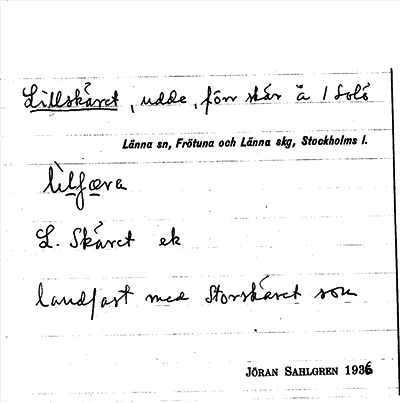 Lillskäret, udde, förr skär å 1 Solö
Länna sn, Frötuna och Länna skg, Stockholms l.
L. Skäret ek
landfast med Storskäret som
JÖRAN SAHLGREN 1936